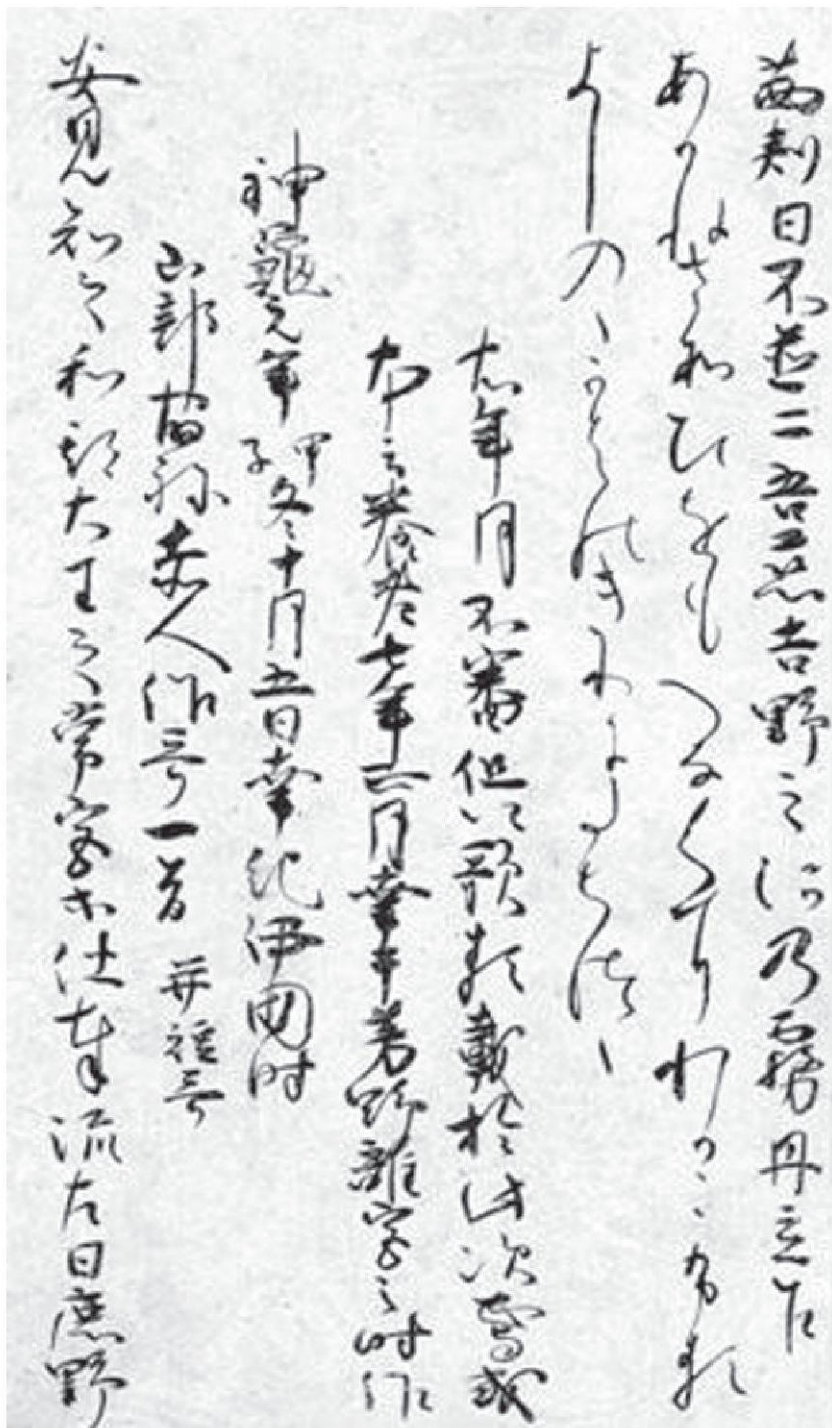 茜刾日不並二吾戀吉野之河乃霧丹立乍
あかねさすひをもへなくにわかこふれ
よしのゝかはのきりにたちつゝ
右年月不審但以歌類載於此次焉或
本云養老七年五月幸于芳野離宮之時作
神龜元年甲子冬十月五日幸紀伊国時
山部宿祢赤人作哥一首 并短哥
安見知之和期大王之常宮等仕奉流左日鹿野